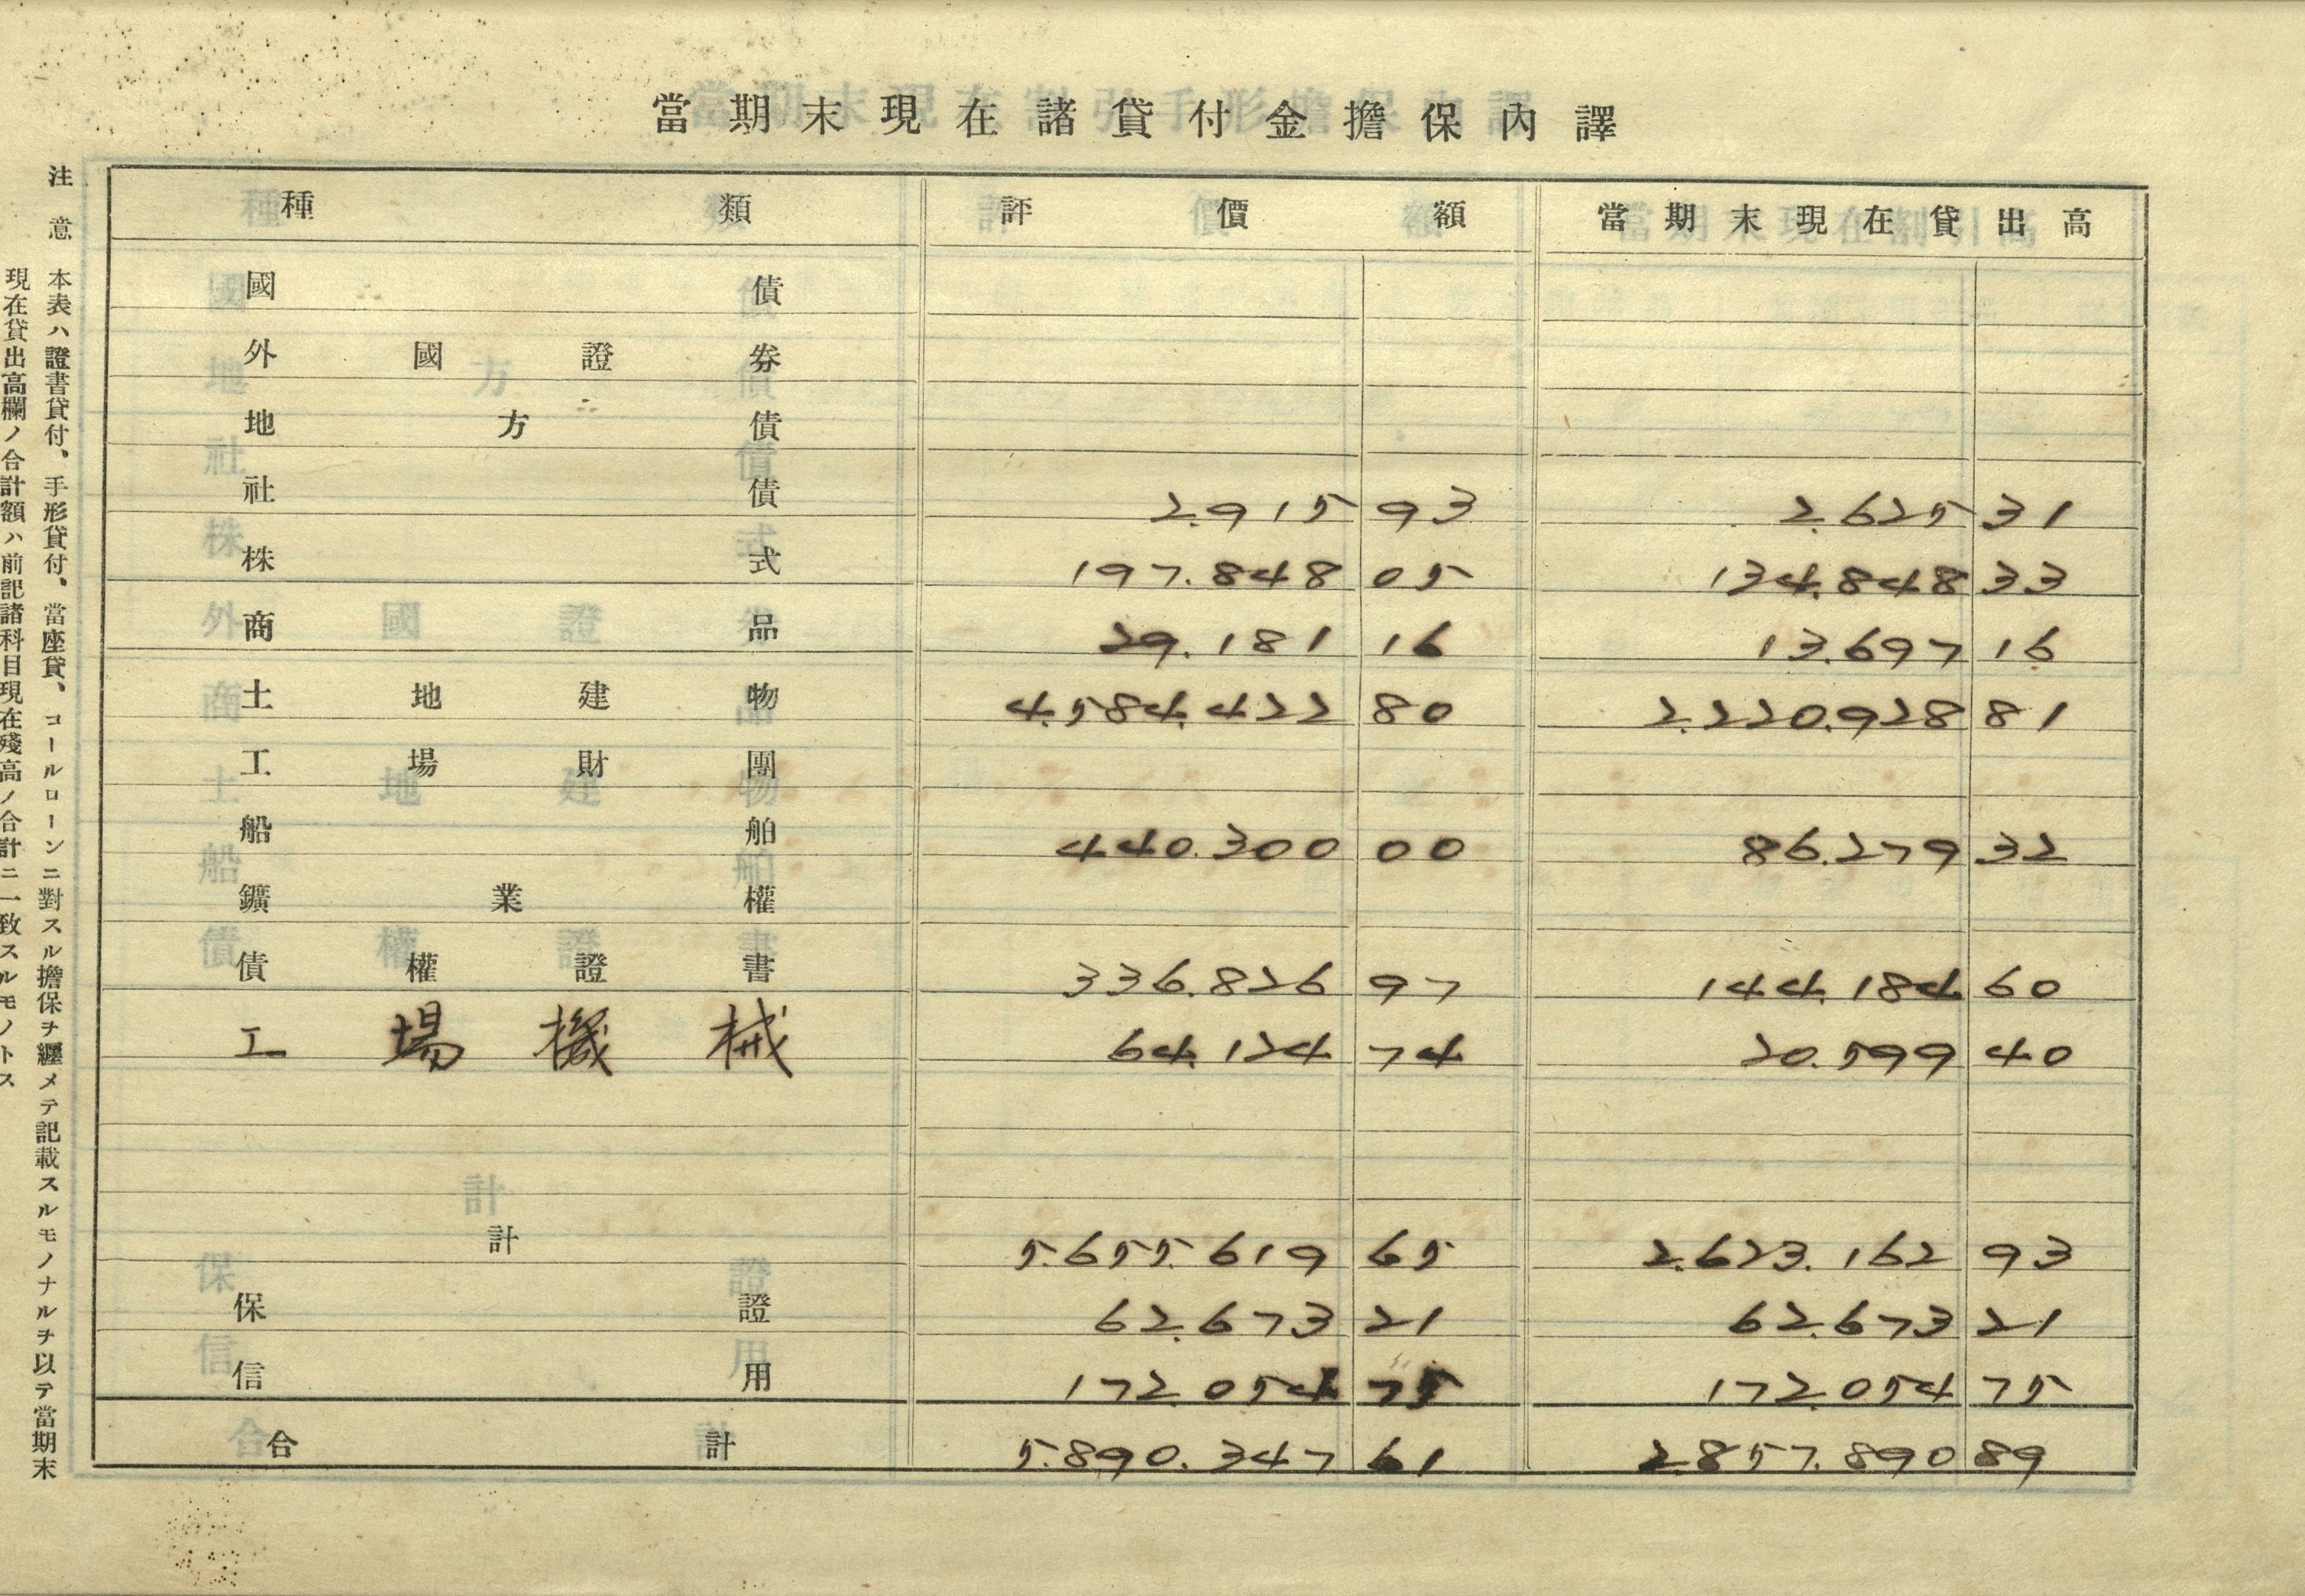 當期末現在諸貸付金擔保內譯
種類 評價額 當期末現在貸出高
國債
外國證券
地方債
社債 2.915 93 2.625 31
株式 197.848 05 134.848 33
商品 29.181 16 13.697 16
土地建物 4.584.422 80 2.220.928 81
工場財團
船舶 440.300 00 86.279 32
鑛業權
債權證書 336.826 97 144.184 60
工場機械 64.124 74 20.599 40
計 5.655.619 65 2.623.162 93
保證 62.673 21 62.673 21
信用 172.054 75 172.054 75
合計 5.890.347 61 2.857.890 89
注意 本表ハ證書貸付、手形貸付、當座貸、コールローンニ對スル擔保ヲ纒メテ記載スルモノナルヲ以テ當期末
現在貸出高欄ノ合計額ハ前記諸科目現在殘高ノ合計ニ一致スルモノトス